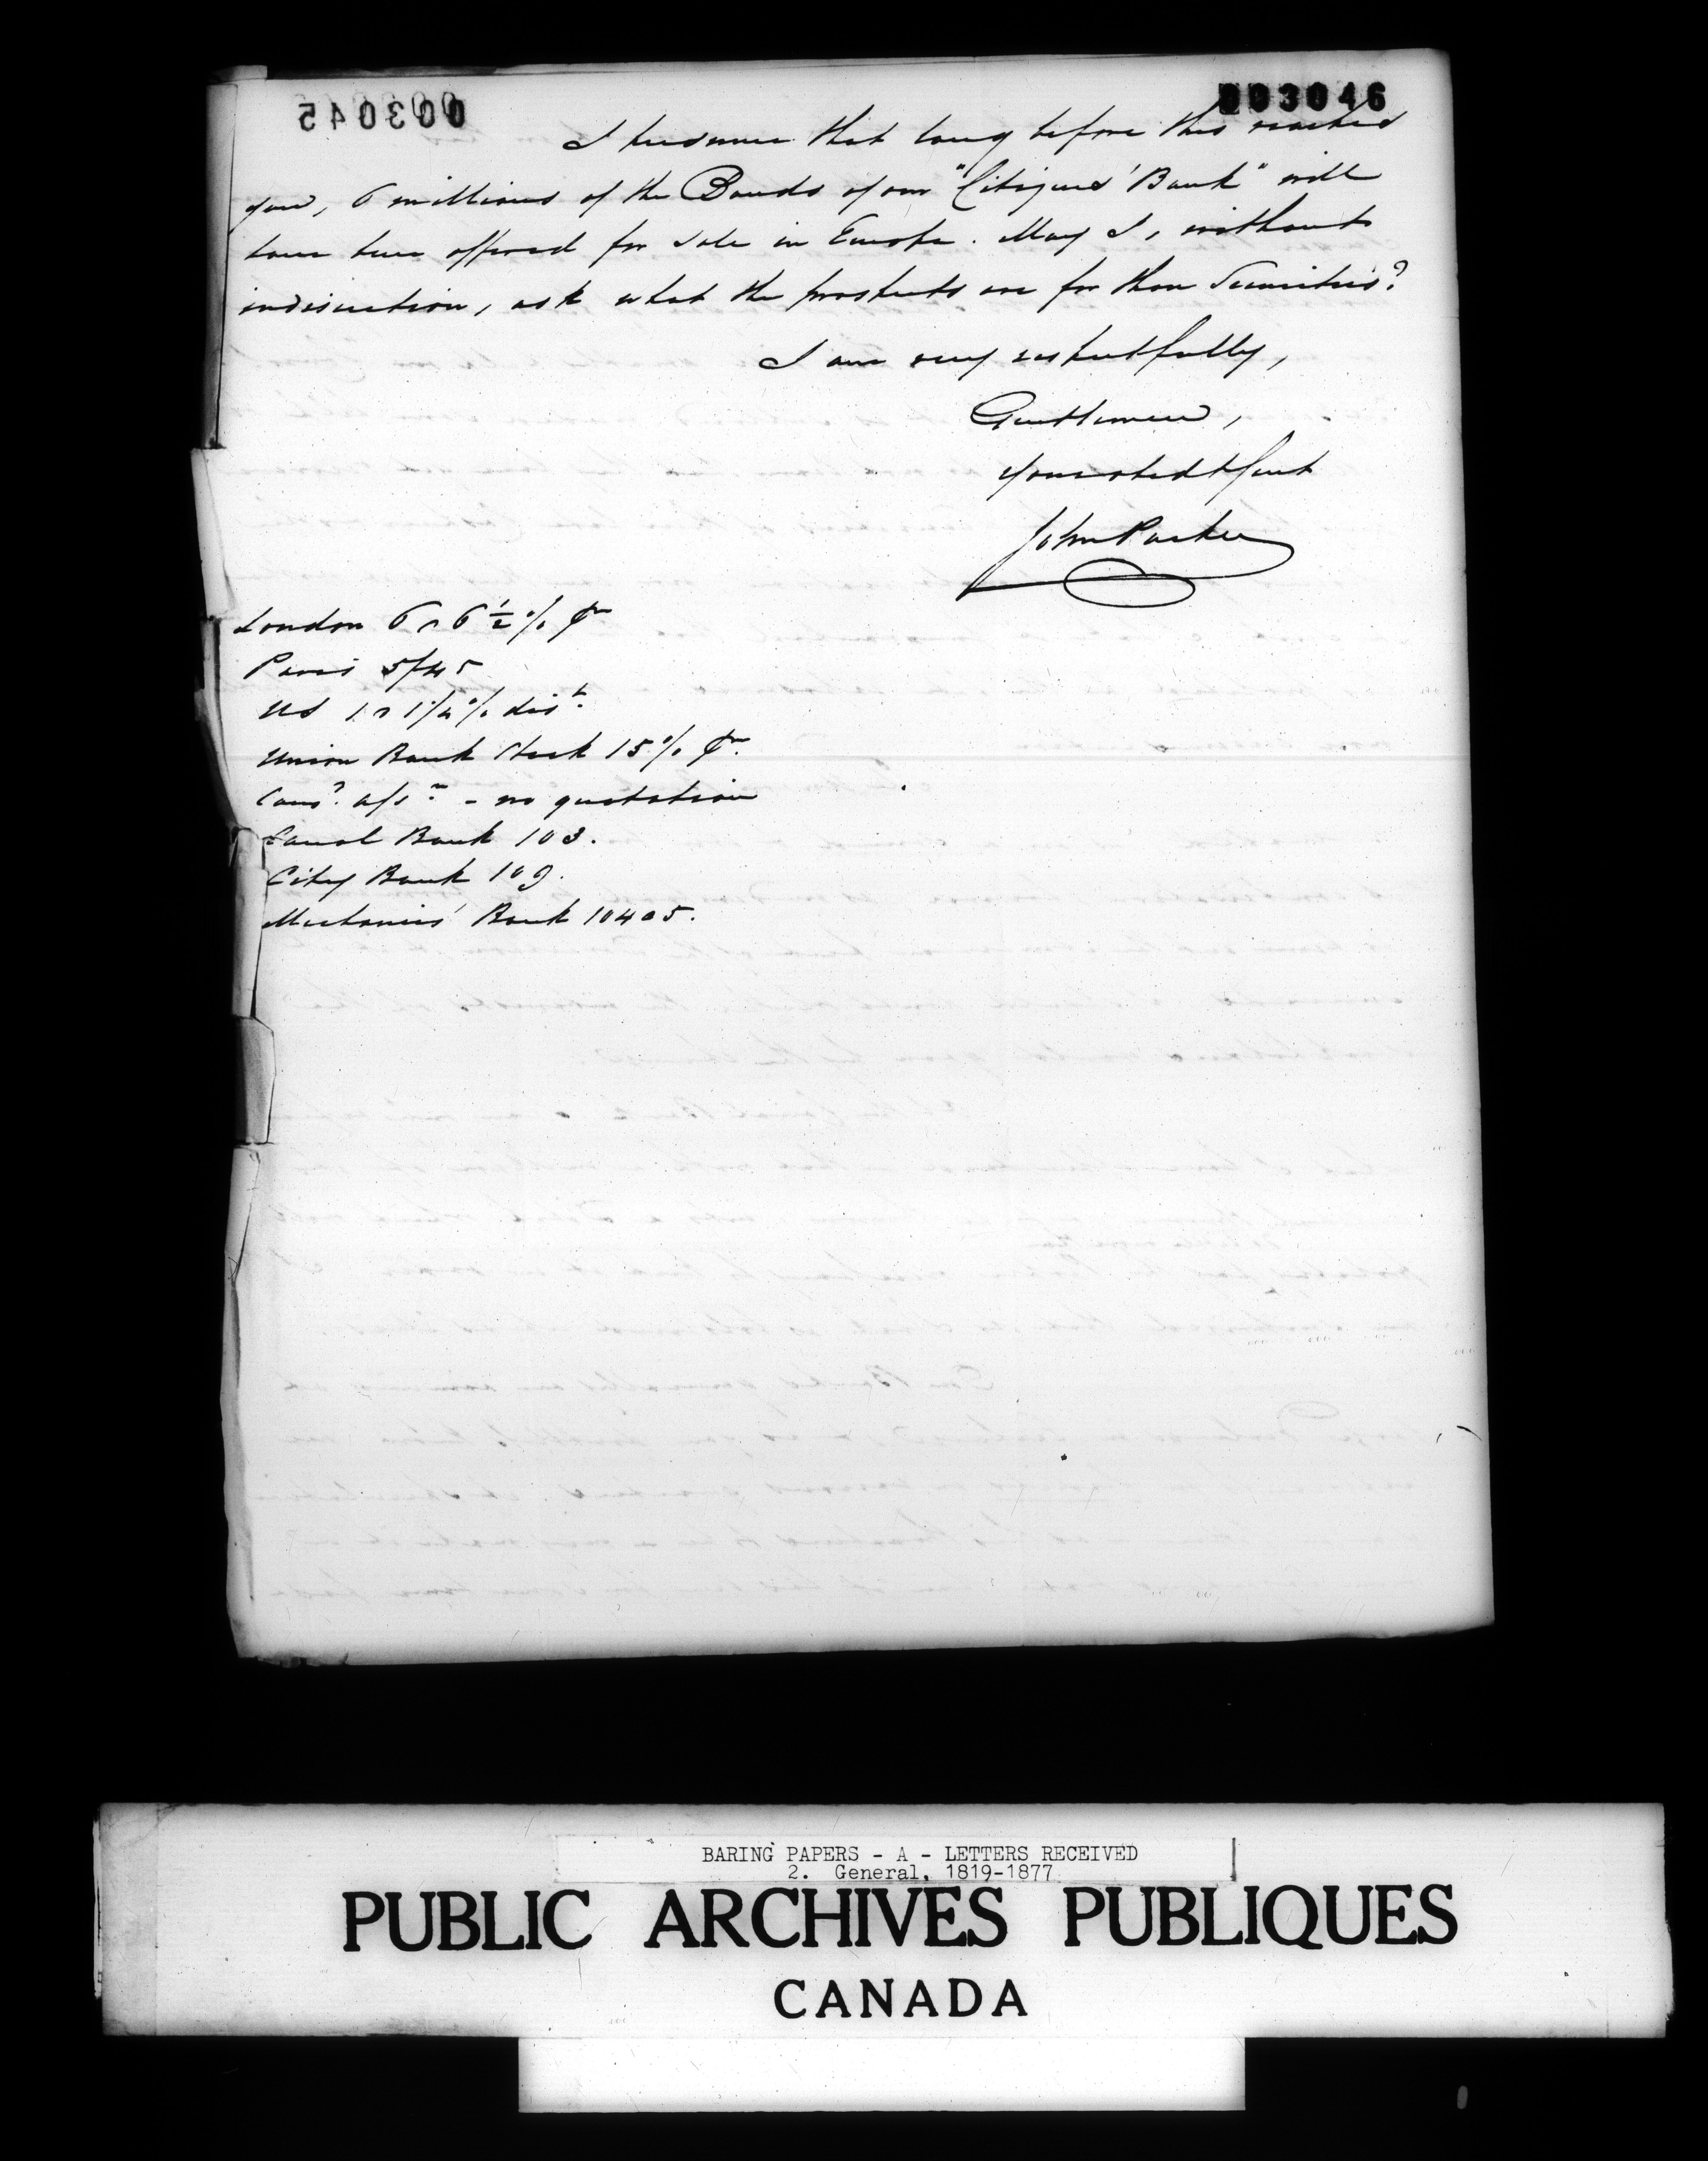 003045
003046
I presume that long before this reaches
you, 6 millions of the Bonds of our "Citizens' Bank" will
have been offered for sale in Europe. May I, without
indiscretion, ask what the prospects are for these Securities?
I am very respectfully,
Gentlemen,
your obedt Servt
John Parker
London 6 a 6 1/2 % pm
Paris 5/45
US 1 a 1 1/4 % dist.
Union Bank Stock 15 % pm.
Cons? a/sn - no quotation
Canal Bank 103.
City Bank 109.
Mechanics' Bank 104 a 5.
BARING PAPERS - A - LETTERS RECEIVED
2. General, 1819-1877
PUBLIC ARCHIVES PUBLIQUES
CANADA